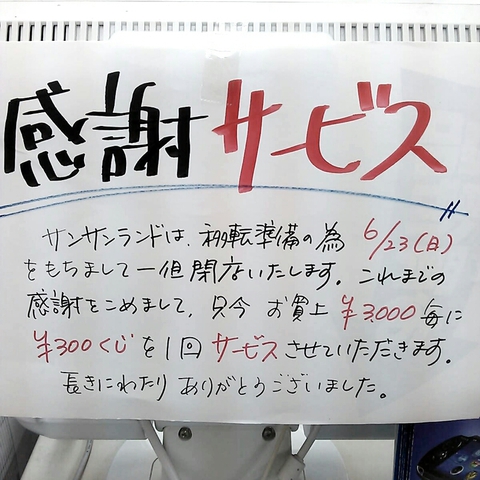 感謝サービス
サンサンランドは、移転準備の為 6/23(日)
をもちまして一但閉店いたします。これまでの
感謝をこめまして、只今 お買上 ¥3,000 毎に
¥300くじを1回 サービスさせていただきます。
長きにわたり ありがとうございました。